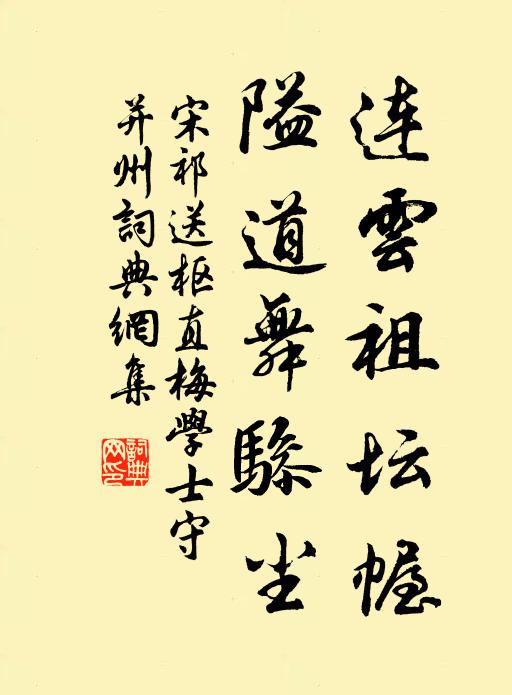 連雲祖坛幄
隘道舞驂尘
宋祁送枢直梅學士守
并州詞典網集
詞典网印